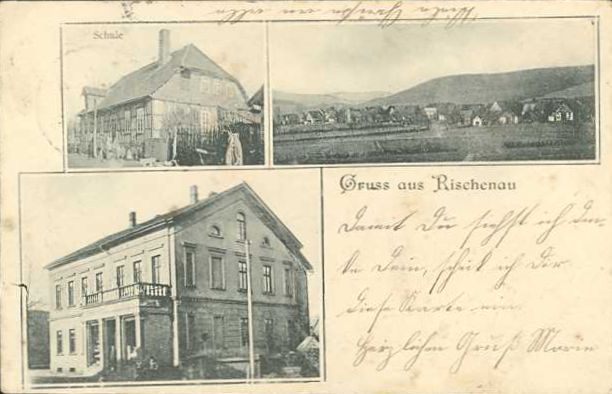 Schule
Gruss aus Rischenau
Damit Du siehst ich den-
ke Dein, schick ich Dir
diese Karte ein.
Herzlichen Gruß Marie